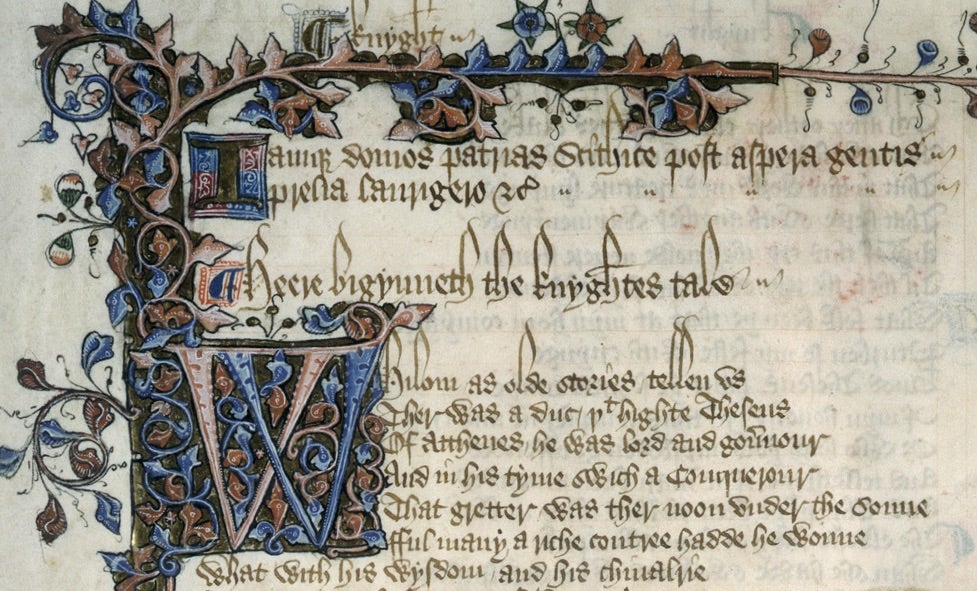 ¶ Knyght
Iamq̢ domos patrias Scithice post aspera gentis
prelia laurigero &c̃
¶ Heere bigynneth the knyghtes tale
Whilom as olde stories tellen vs
Ther was a duc / þͭ highte Theseus
Of Atthenes he was lord and gou̕nour
And in his tyme swich a Conquerour
That gretter was ther noon vnder the sonne
fful many a riche contree hadde he wonne
What with his wysdom and his chiualrie